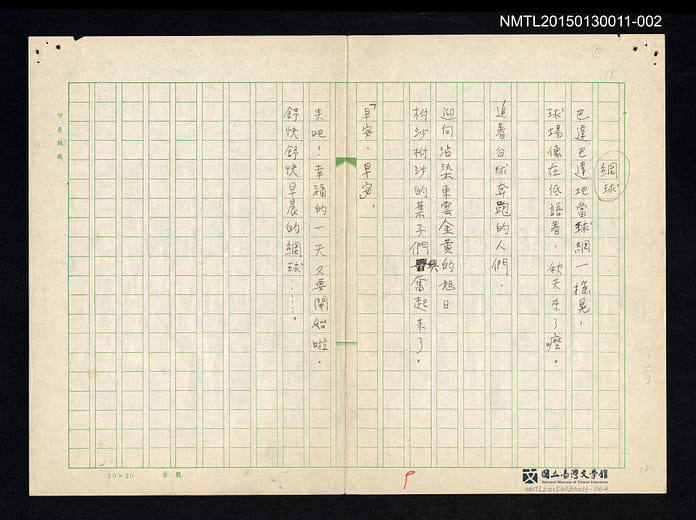 NMTL20150130011-002
11
網球
巴達巴達地當球網一搖晃，
球場像在低語著，秋天來了嚒。
追著白球奔跑的人們．
迎向沾染東雲金黃的旭日
樹沙樹沙的葉子們興奮起來了。
「早安，早安，
來吧！幸福的一天又要開始啦。
舒快舒快早晨的網球……。
20×20
國立臺灣文學館
National Museum of Taiwan Literature
NMTL20150130011-002
12